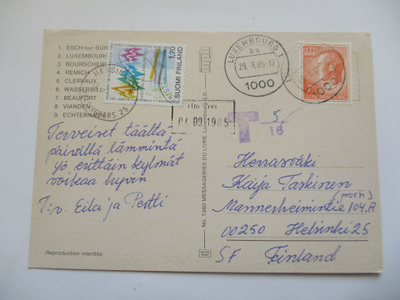 1 ESCH-sur-SÛR
2 LUXEMBOUR
3 BOURSCHEI
4 REMICH
5 CLERVAUX
6 WASSERBILL
7 BEAUFORT
8 VIANDEN
9 ECHTERNA
1,70
SUOMI FINLAND
LUXEMBOURG 1
29.8.85-17
1000
01.09.1985
T 5
16
Terveiset täältä
päivällä lämmintä
yö erittäin kylmät
voikaa hyvin
T:v. Eila ja Pertti
No. 1360 MESSAGERIES DU LIVRE, LUXEMBOURG
Herrasväki
Kaija Tarkinen
Mannerheimintie 104.A
00250 Helsinki 25
SF Finland
Reproduction interdite